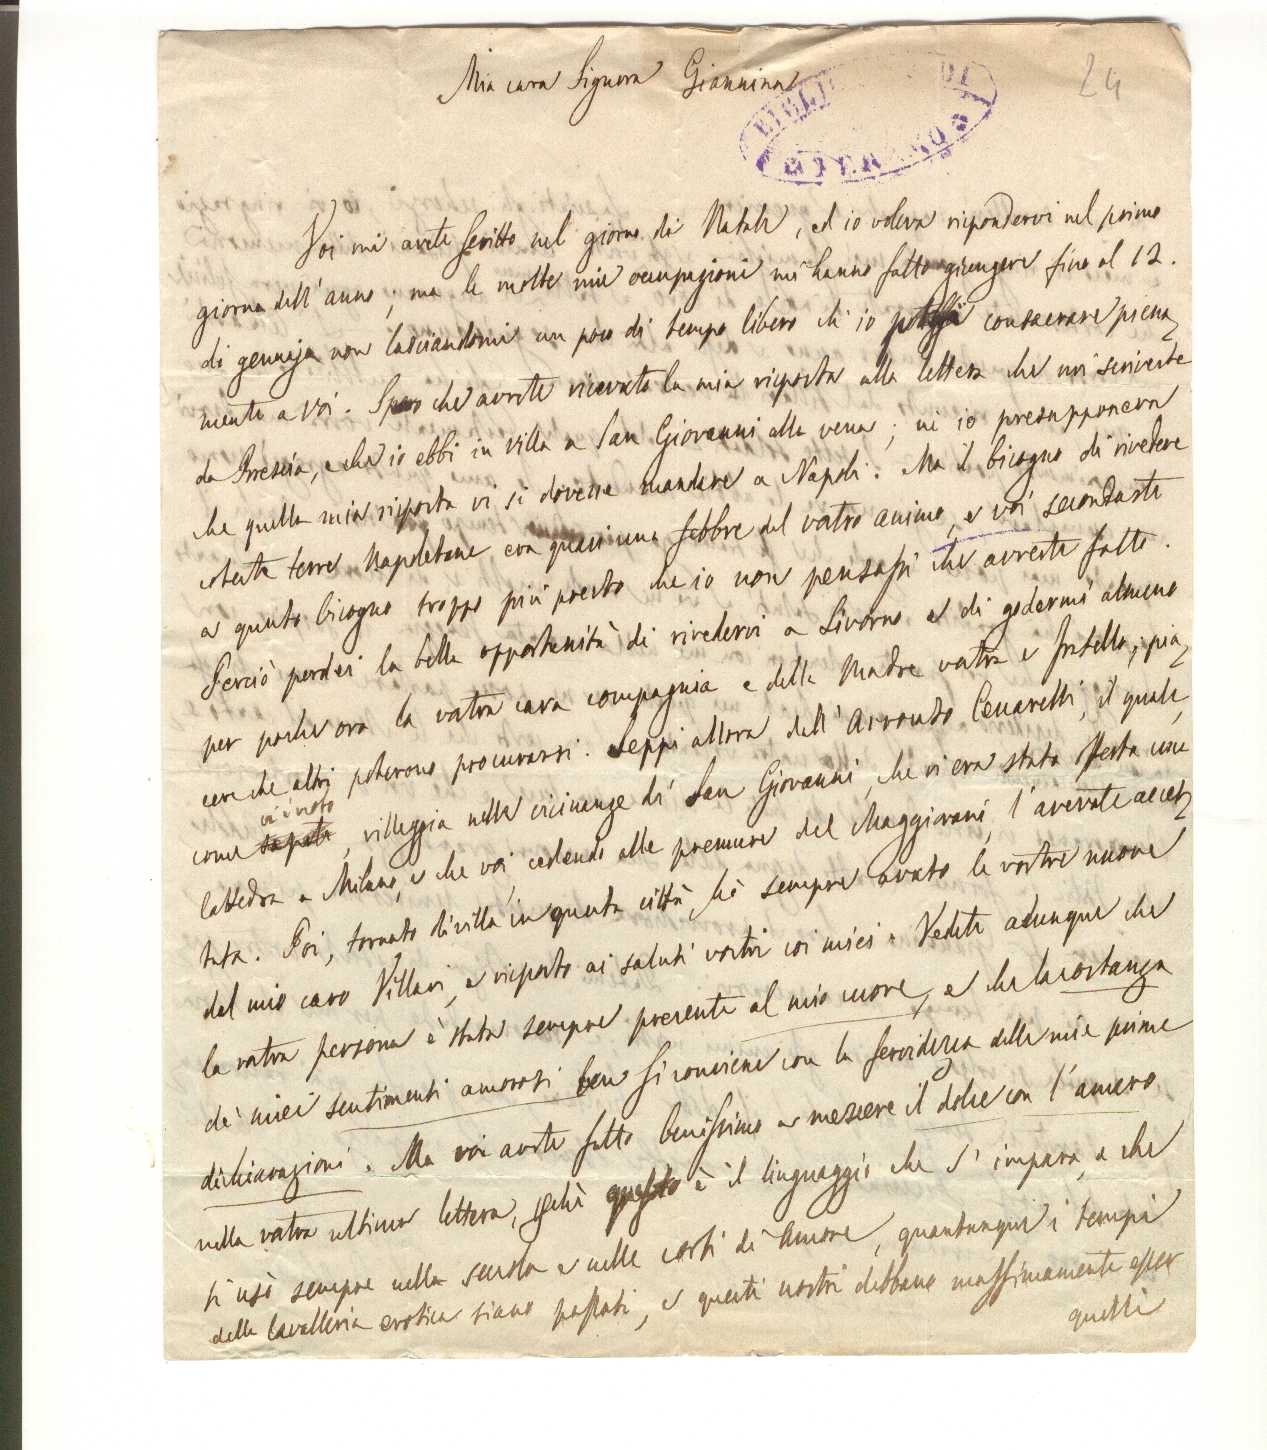 Mia cara Signora Giannina
24
BIBLI DI
TERAMO
Voi mi avete scritto nel giorno di Natale, ed io voleva rispondervi nel primo
giorno dell'anno; ma le molte mie occupazioni mi hanno fatto giungere fino al 12.
di gennajo non lasciandomi un poco di tempo libero ch'io potessi consacrare piena
mente a voi. Spero che avrete ricevuto la mia risposta alla lettera che mi scriveste
da Brescia, e che io ebbi in villa a San Giovanni alla vena; nè io presupponeva
che quella mia risposta vi si dovesse mandare a Napoli. Ma il bisogno di rivedere
coteste terre Napoletane era quasi una febbre del vostro animo, e voi secondaste
a questo bisogno troppo più presto che io non pensassi che avreste fatto.
Perciò perdei la bella opportunità di rivedervi a Livorno e di godermi almeno
per poche ore la vostra cara compagnia e della Madre vostra e fratello; pia
cere che altri poterono procurarsi. Seppi allora dell' il quale,
come vi è noto
sapete, villeggia nelle vicinanze di San Giovanni, che vi era stata offerta una
Cattedra a Milano, e che voi cedendo alle premure del Maggiorani, l'avevate accet
tata. Poi, tornato di villa in questa città, hò sempre avuto le vostre nuove
dal mio caro Villari, e risposto ai saluti vostri coi miei. Vedete adunque che
la vostra persona è stata sempre presente al mio cuore, e che la costanza
de' miei sentimenti amorosi ben si conviene con la fervidezza delle mie prime
dichiarazioni. Ma voi avete fatto benissimo a mescere il dolce con l'amaro
nella vostra ultima lettera, chè questo è il linguaggio che s'impara, e che
si usò sempre nella scuola e nelle corti di Amore, quantunque i tempi
della Cavalleria erotica siano passati, e questi nostri debbano massimamente esser
quelli